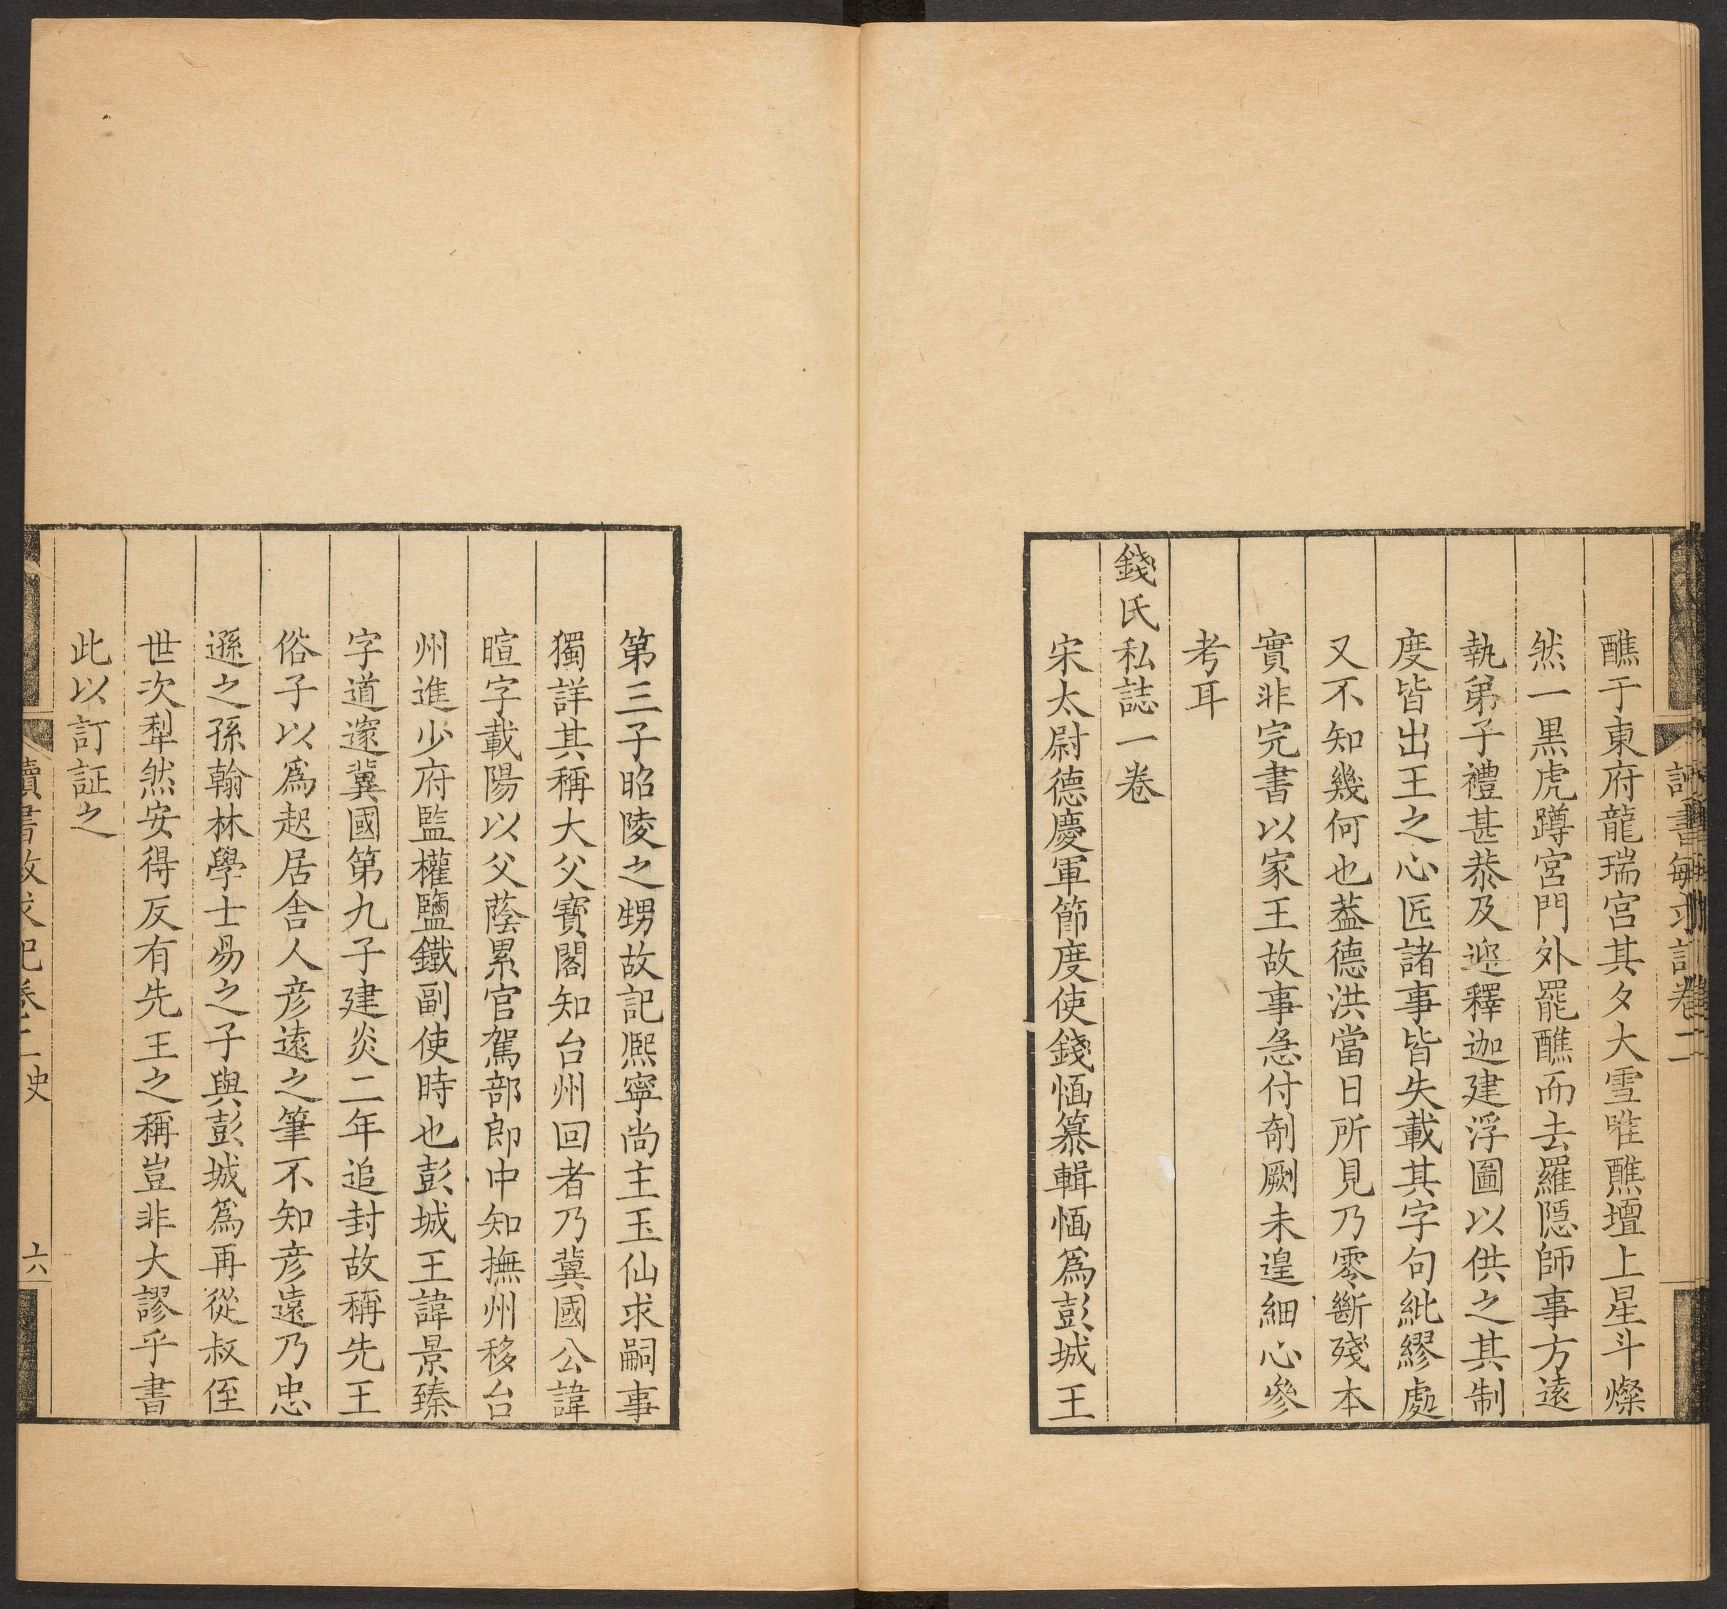 醮于東府龍瑞宮其夕大雪唯醮壇上星斗燦
然一黑虎蹲宮門外罷醮而去羅隱師事方遠
執弟子禮甚恭及迎釋迦建浮圖以供之其制
度皆出王之心匠諸事皆失載其字句紕繆處
又不知幾何也葢德洪當日所見乃零斷殘本
實非完書以家王故事急付剞劂未遑細心參
考耳
錢氏私誌一卷
宋太尉德慶軍節度使錢愐纂輯愐爲彭城王
第三子昭陵之甥故記熈寧尚主玉仙求嗣事
獨詳其稱大父寶閣知台州回者乃冀國公諱
暄字載陽以父蔭累官駕部郎中知撫州移台
州進少府監權鹽鐵副使時也彭城王諱景臻
字道邃冀國第九子建炎二年追封故稱先王
俗子以爲起居舍人彥遠之筆不知彥遠乃忠
遜之孫翰林學士易之子與彭城爲再從叔侄
世次犁然安得反有先王之稱豈非大謬乎書
此以訂証之
讀書敏求記卷二史
六